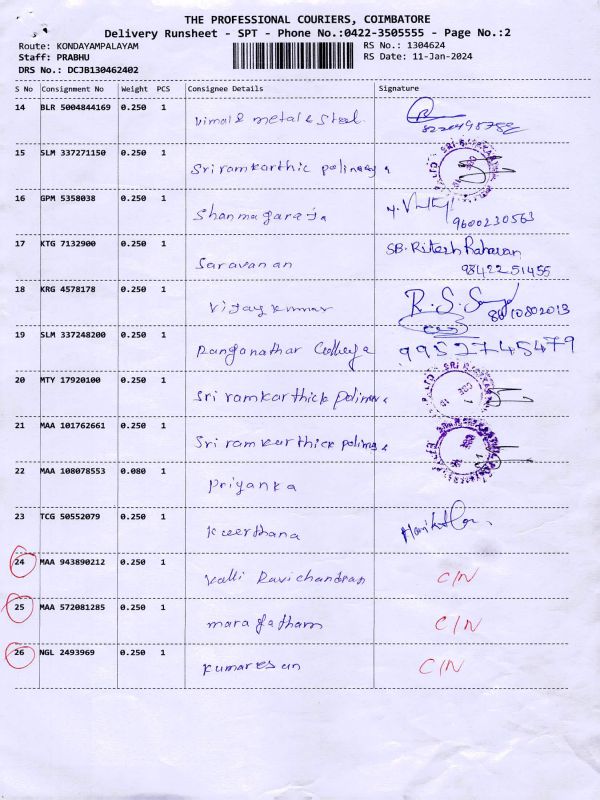 THE PROFESSIONAL COURIERS, COIMBATORE
Delivery Runsheet - SPT - Phone No.:0422-3505555 - Page No.:2
Route: KONDAYAMPALAYAM
RS No.: 1304624
Staff: PRABHU
RS Date: 11-Jan-2024
DRS No.: DCJB130462402
S No Consignment No Weight PCS Consignee Details Signature
14 BLR 5004844169 0.250 1 Vimal & metal & Steel
15 SLM 337271150 0.250 1 Sri ramkarthic
16 GPM 5358038 0.250 1 Shanmagaraja
9600230563
17 KTG 7132900 0.250 1 Saravanan SB. Ritesh
9842251455
18 KRG 4578178 0.250 1 Vijaykumar R. S.
8610802013
19 SLM 337248200 0.250 1 Ranganathar 9952745479
20 MTY 17920100 0.250 1 Sri ramkarthick
21 MAA 101762661 0.250 1 Sri ramkarthick
22 MAA 108078553 0.080 1 Priyanka
23 TCG 50552079 0.250 1 Keerthana
24 MAA 943890212 0.250 1 Valli Ravichandran C/N
25 MAA 572081285 0.250 1 maragatham C/N
26 NGL 2493969 0.250 1 Kumaresan C/N